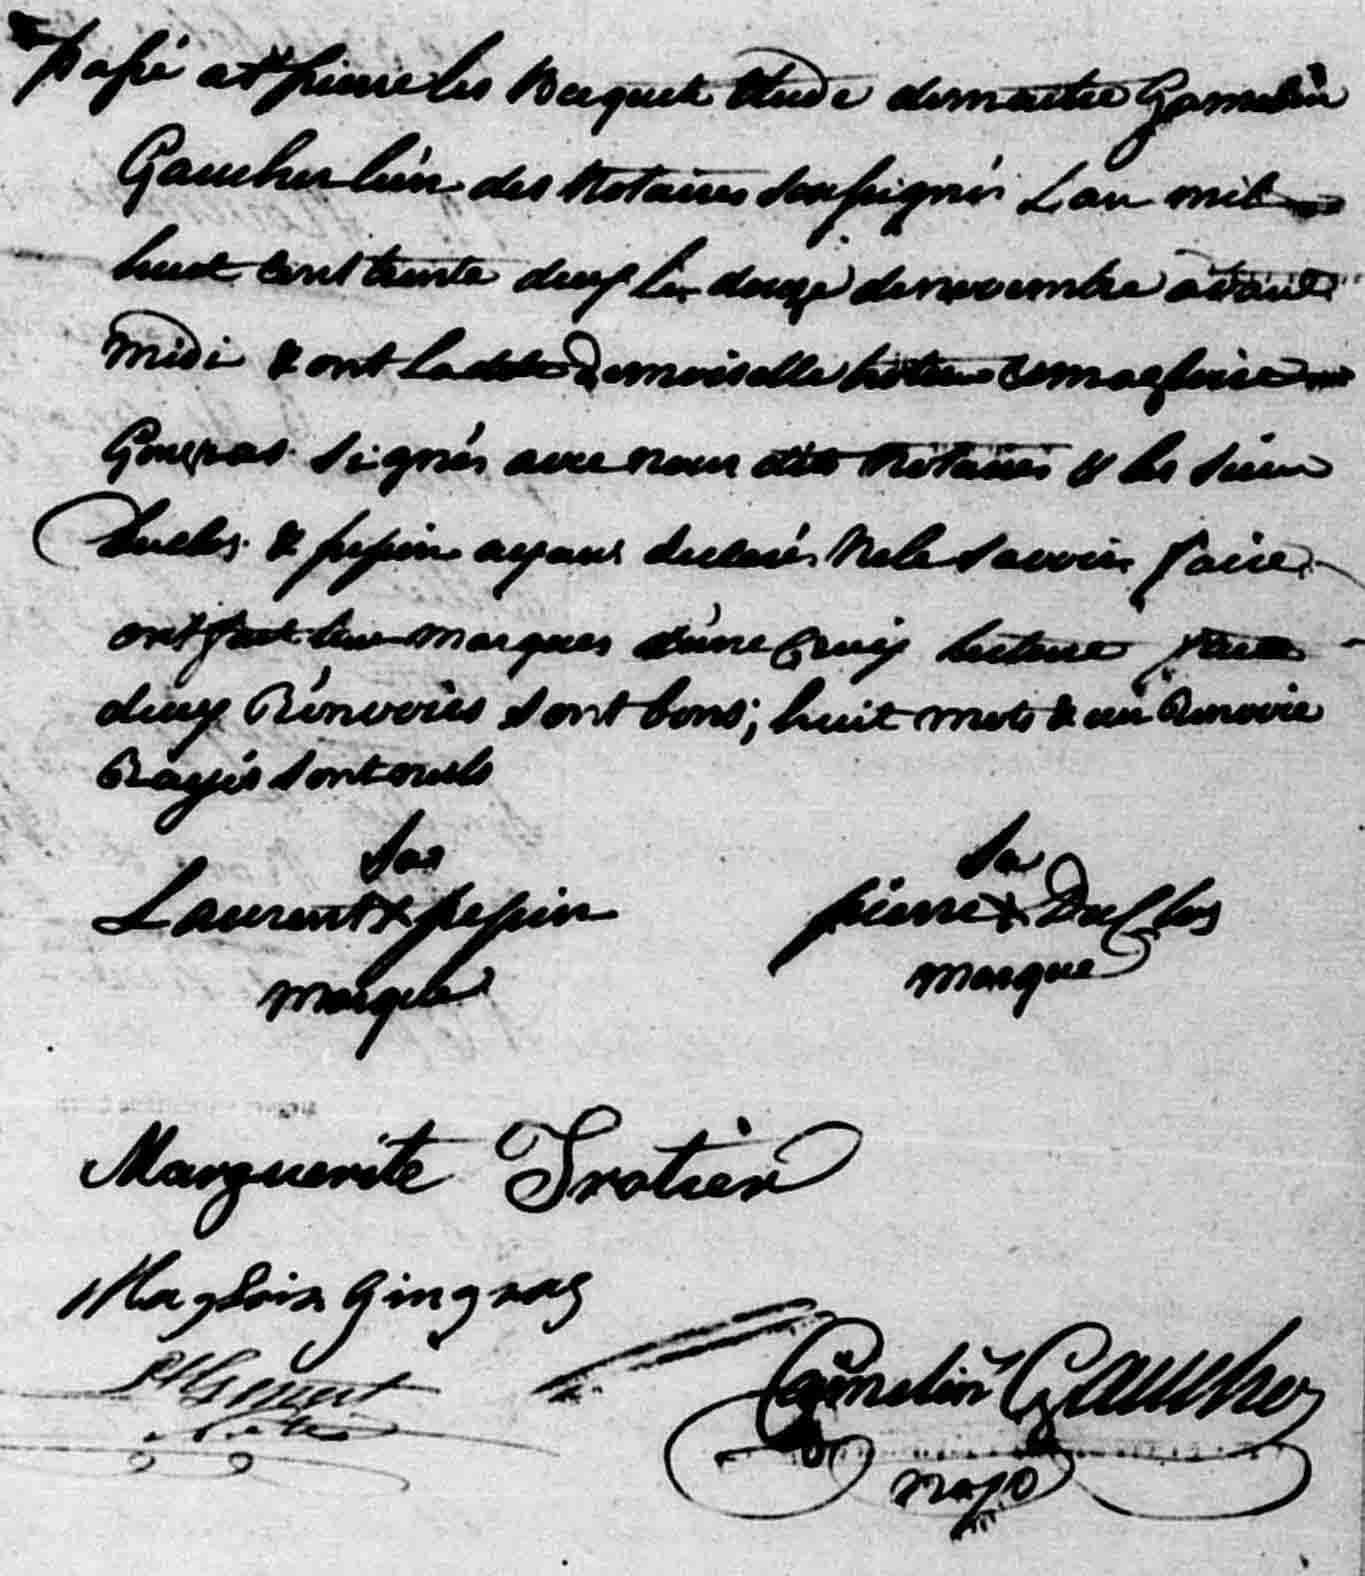 passé a St pierre les Becquets Etude de maitre Gamelin
Gaucher l'un des Notaires soussignés L'an mil
huit cent trente deux le douze de novembre avant
midi & ont ladite Demoiselle & magloire
Gingras signés avec nous dits Notaires & les sieurs
Duclos & pepin ayant declarés Ne le savoir faire
ont fait leur marques d'une Croix lecture faite
deux Rénvoies sont bons; huit mots & un Renvoie
Rayés sont nuls
Sa sa
Laurent x pepin pierre x Duclos
marque marque
Marguerite Trotier
Magloir Gingras
Gamelin Gaucher